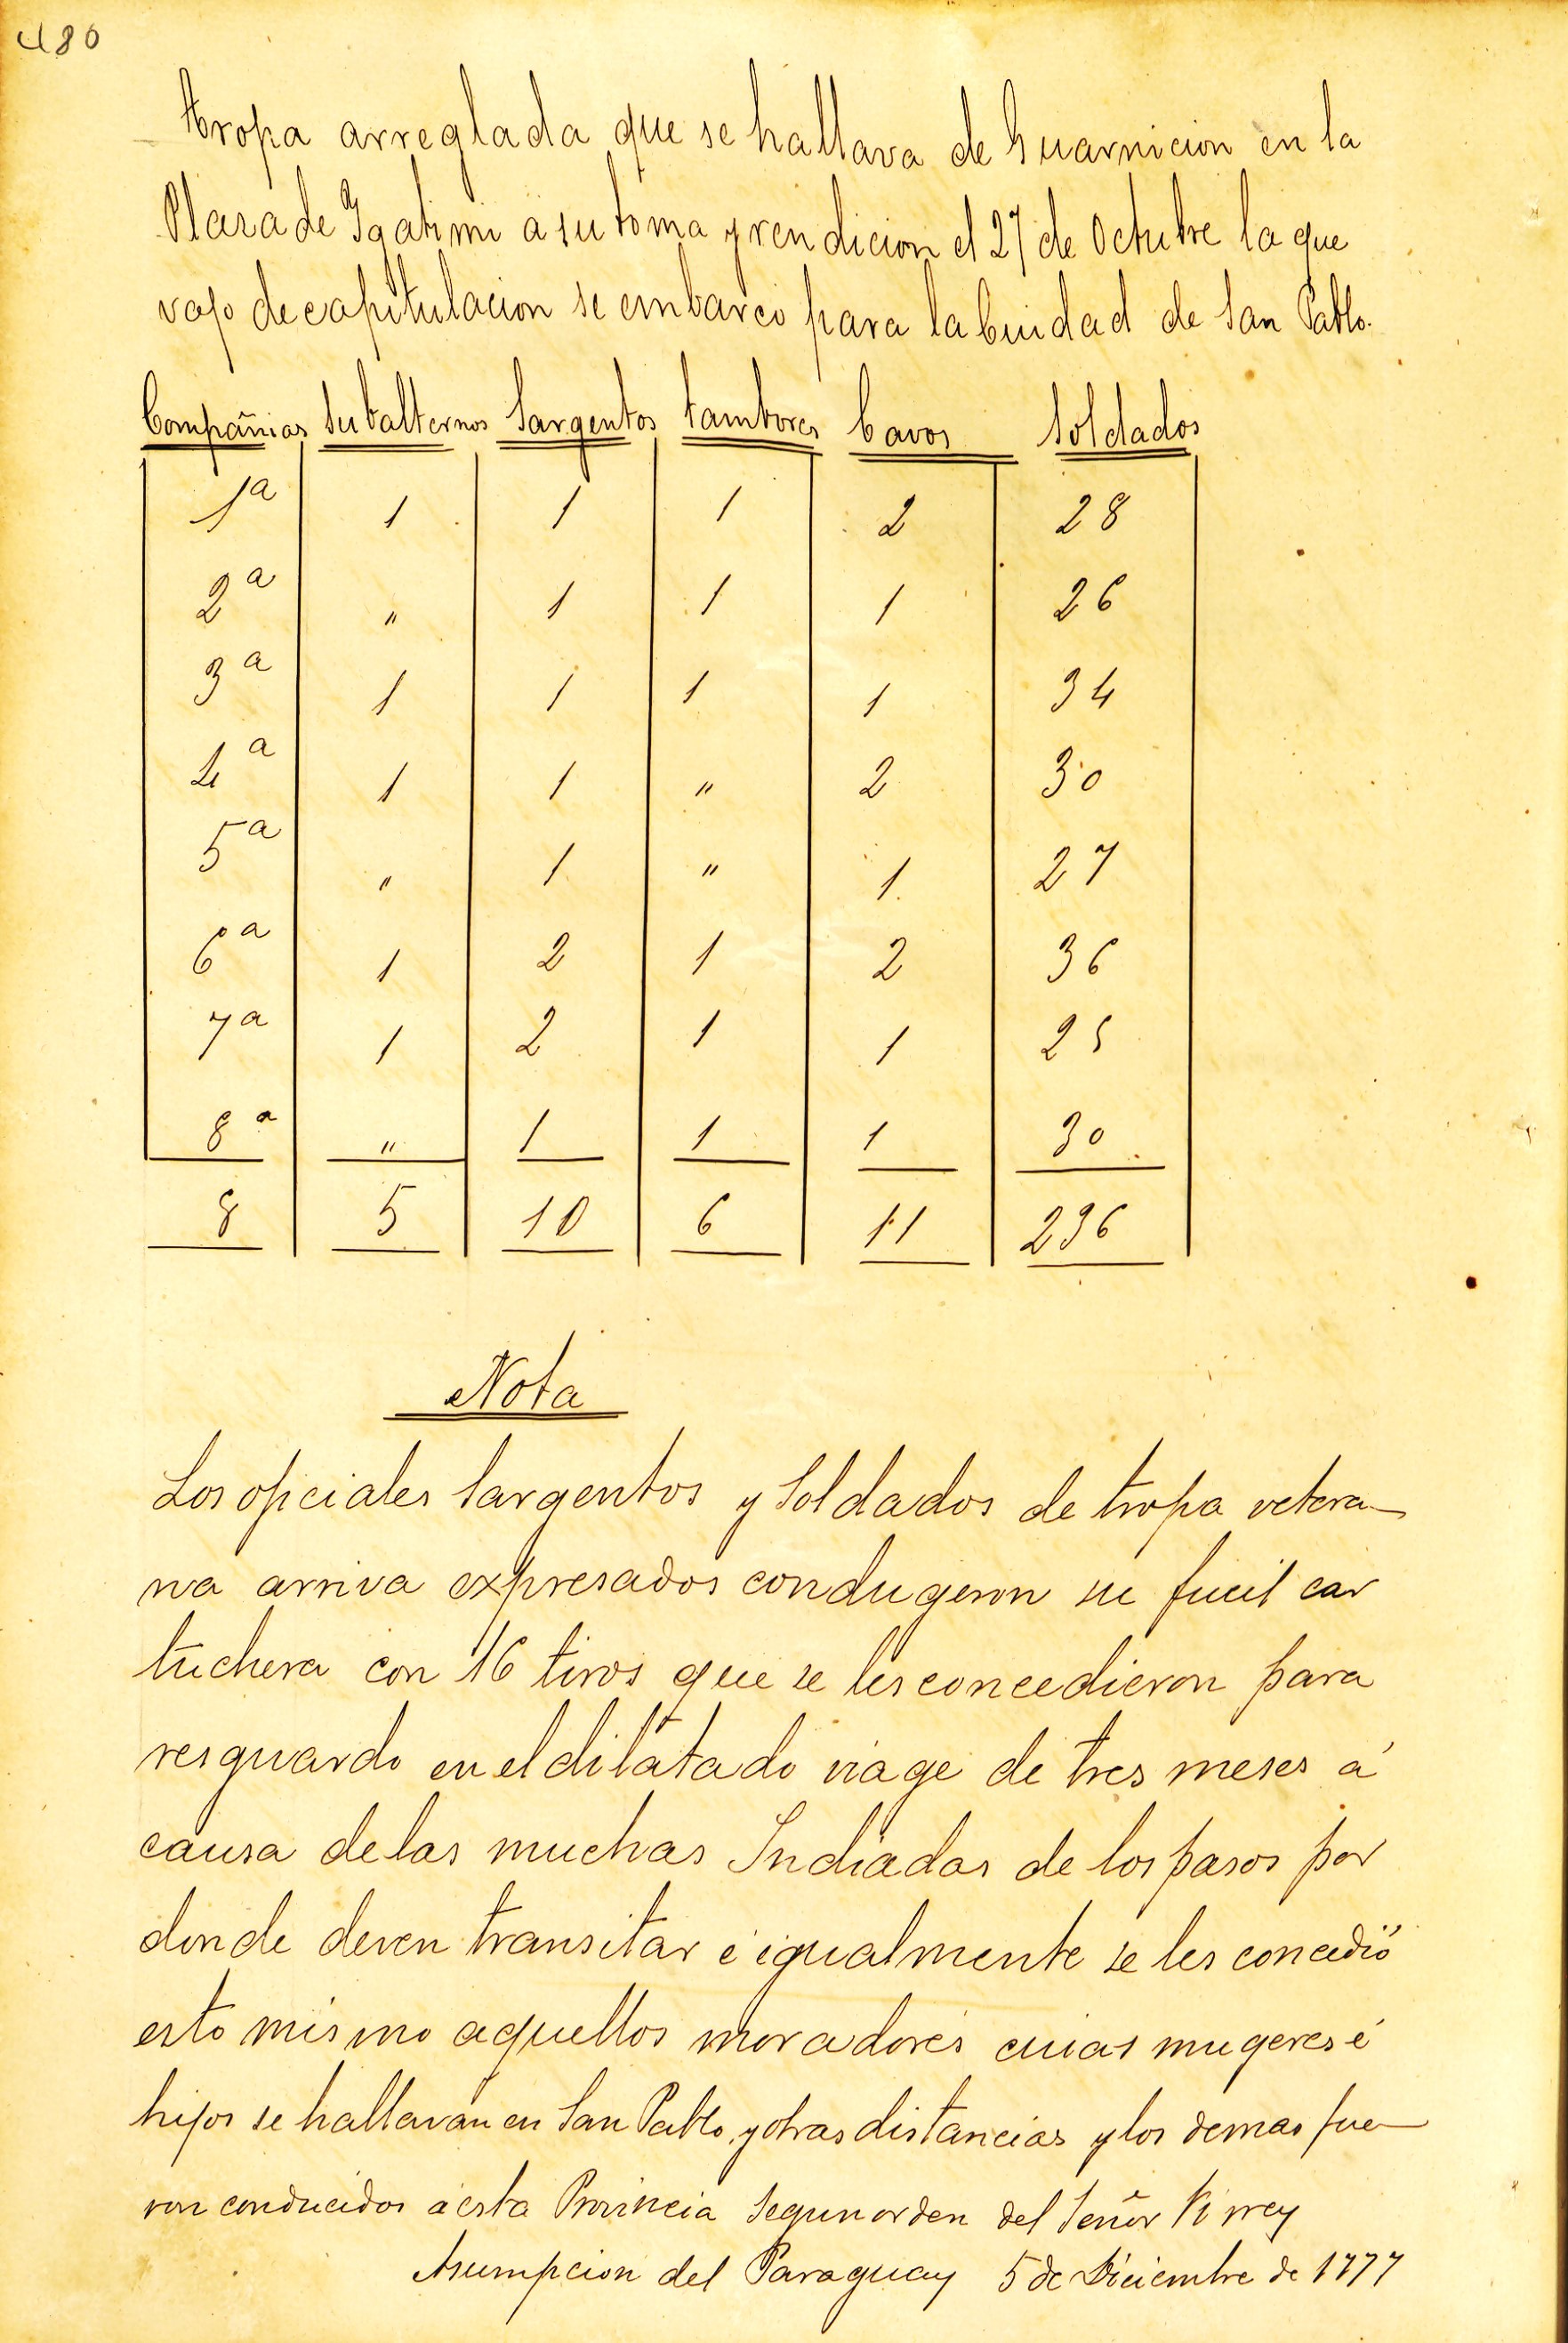 480
tropa arreglada que se hallava de Guarnicion en la
Plaza de Ygatimi a su toma y rendicion el 27 de Octubre la que
vajo de capitulacion se embarco para la Ciudad de San Pablo.
Compañias Subalternos Sargentos tambores Cavos Soldados
1ª 1 1 1 2 28
2ª " 1 1 1 26
3ª 1 1 1 1 34
4ª 1 1 " 2 30
5ª " 1 " 1 27
6ª 1 2 1 2 36
7ª 1 2 1 1 25
8ª " 1 1 1 30
8 5 10 6 11 236
Nota
Los oficiales Sargentos y Soldados de tropa vetera-
na arriva expresados condugeron su fucil car
tuchera con 16 tiros que se les concedieron para
resguardo en el dilatado viage de tres meses á
causa de las muchas Indiadas de los pasos por
donde deven transitar é igualmente se les concedió
esto mismo aquellos moradores cuias mugeres é
hijos se hallavan en San Pablo, y otras distancias y los demas fue-
ron conducidos á esta Provincia segun orden del Señor Virrey
Asumpcion del Paraguay 5 de Diciembre de 1777